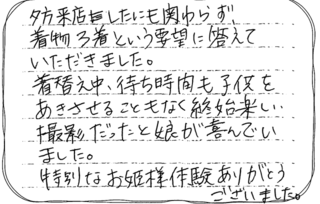 夕方来店したにも関わらず、
着物3着という要望に答えて
いただきました。
着替え中、待ち時間も子供を
あきさせることもなく終始楽しい
撮影だったと娘が喜んでい
ました。
特別なお姫様体験ありがとう
ございました。